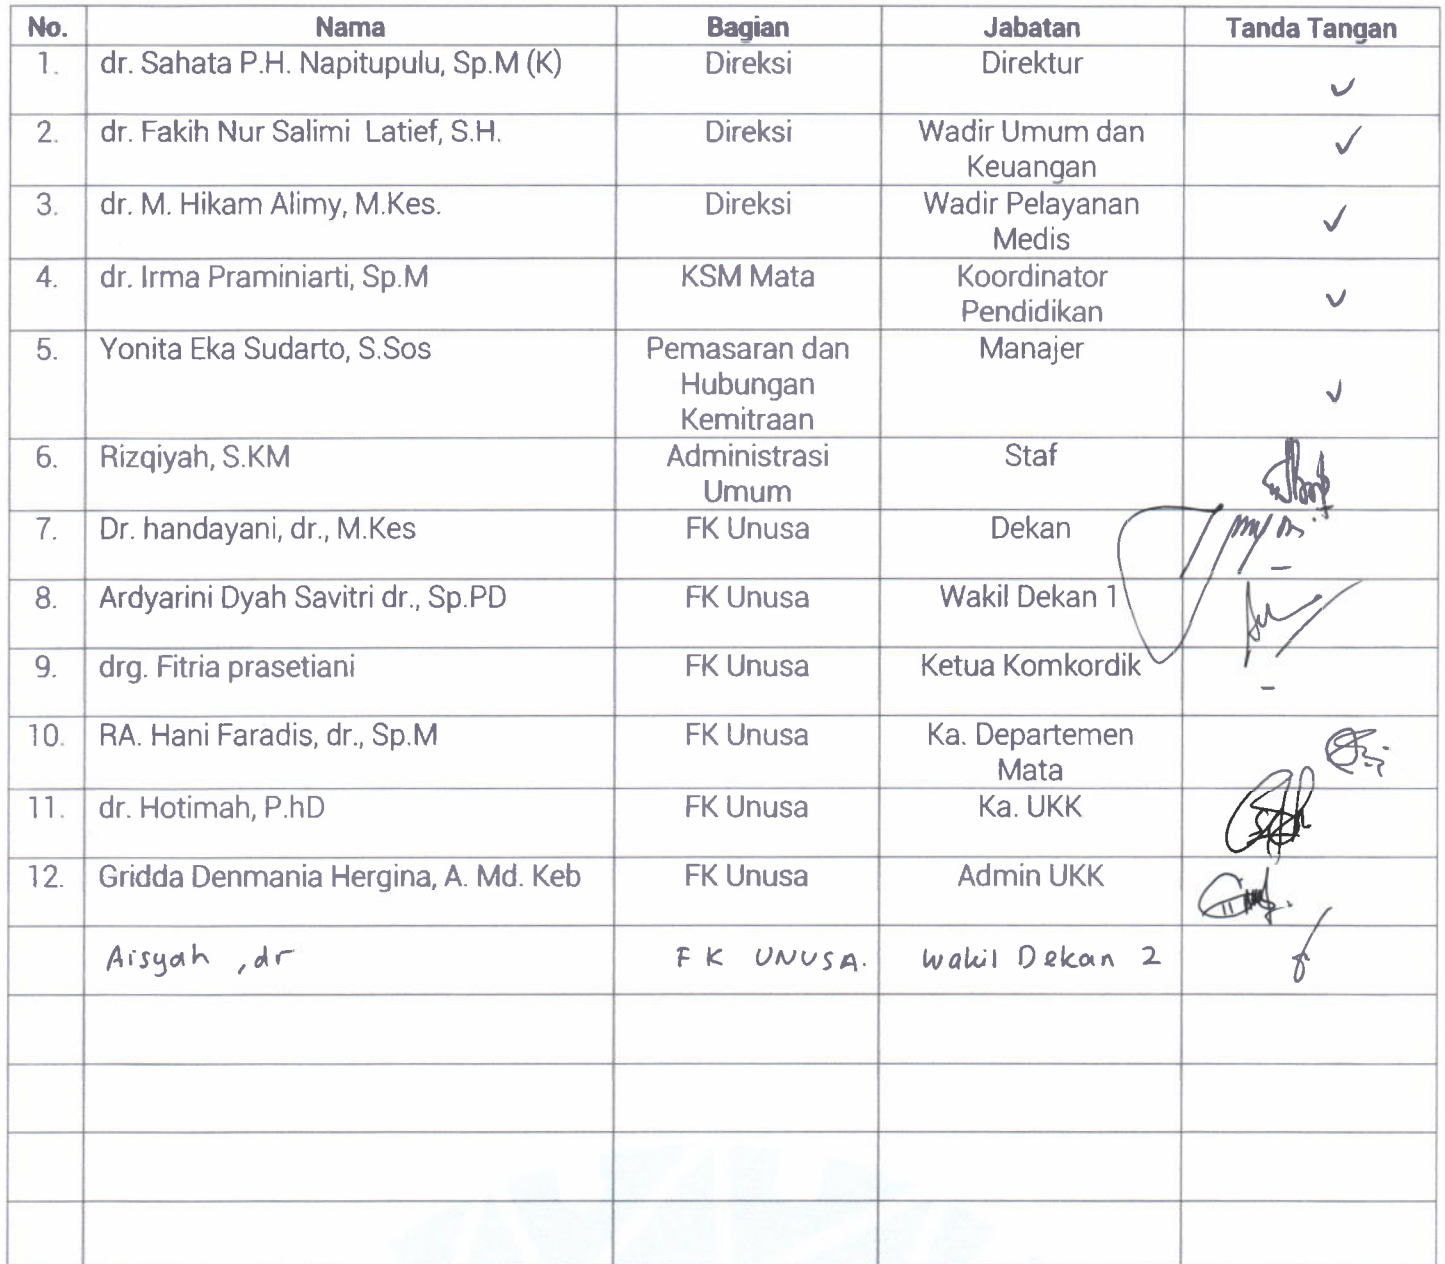 No. Nama Bagian Jabatan Tanda Tangan
1. dr. Sahata P.H. Napitupulu, Sp.M (K) Direksi Direktur
2. dr. Fakih Nur Salimi Latief, S.H. Direksi Wadir Umum dan
Keuangan
3. dr. M. Hikam Alimy, M.Kes. Direksi Wadir Pelayanan
Medis
4. dr. Irma Praminiarti, Sp.M KSM Mata Koordinator
Pendidikan
5. Yonita Eka Sudarto, S.Sos Pemasaran dan Manajer
Hubungan
Kemitraan
6. Rizqiyah, S.KM Administrasi Staf
Umum
7. Dr. handayani, dr., M.Kes FK Unusa Dekan
8. Ardyarini Dyah Savitri dr., Sp.PD FK Unusa Wakil Dekan 1
9. drg. Fitria prasetiani FK Unusa Ketua Komkordik
10. RA. Hani Faradis, dr., Sp.M FK Unusa Ka. Departemen
Mata
11. dr. Hotimah, P.hD FK Unusa Ka. UKK
12. Gridda Denmania Hergina, A. Md. Keb FK Unusa Admin UKK
Aisyah , dr FK UNUSA. Wakil Dekan 2